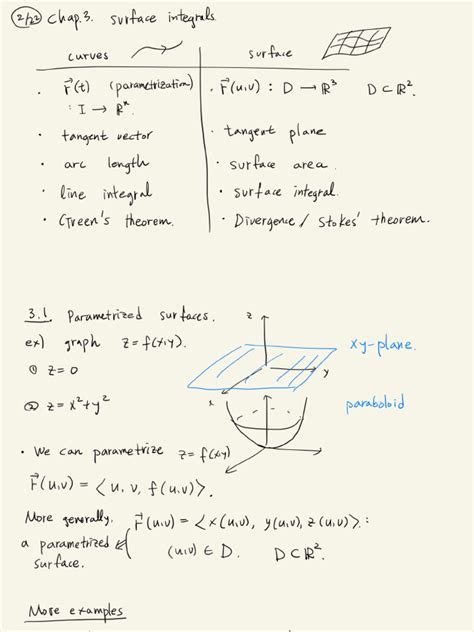 2/22 Chap.3. surface integrals.
curves surface
· r⃗(t) (parametrization) · r⃗(u,v) : D → ℝ³ D ⊂ ℝ².
: I → ℝⁿ
· tangent vector · tangent plane
· arc length · surface area.
· line integral · surface integral.
· Green's theorem. · Divergence / Stokes' theorem.
3.1. Parametrized surfaces.
ex) graph z = f(x,y).
z
① z = 0
xy-plane.
y
x
② z = x² + y²
paraboloid
· We can parametrize z = f(x,y)
r⃗(u,v) = ⟨ u, v, f(u,v)⟩.
More generally, r⃗(u,v) = ⟨x(u,v), y(u,v), z(u,v)⟩ :
a parametrized surface. (u,v) ∈ D. D ⊂ ℝ².
More examples